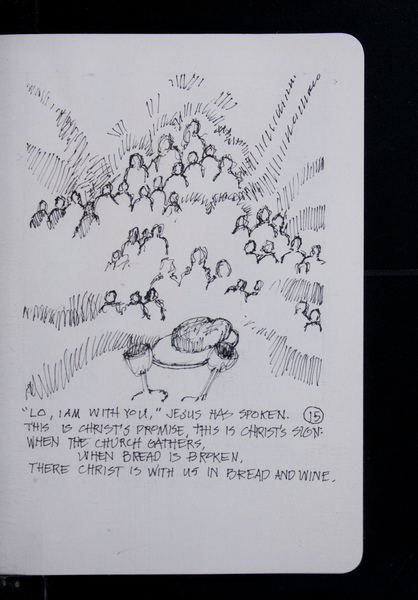 "LO, I AM WITH YOU," JESUS HAS SPOKEN. 15
THIS IS CHRIST'S PROMISE, THIS IS CHRIST'S SIGN:
WHEN THE CHURCH GATHERS,
WHEN BREAD IS BROKEN,
THERE CHRIST IS WITH US IN BREAD AND WINE.